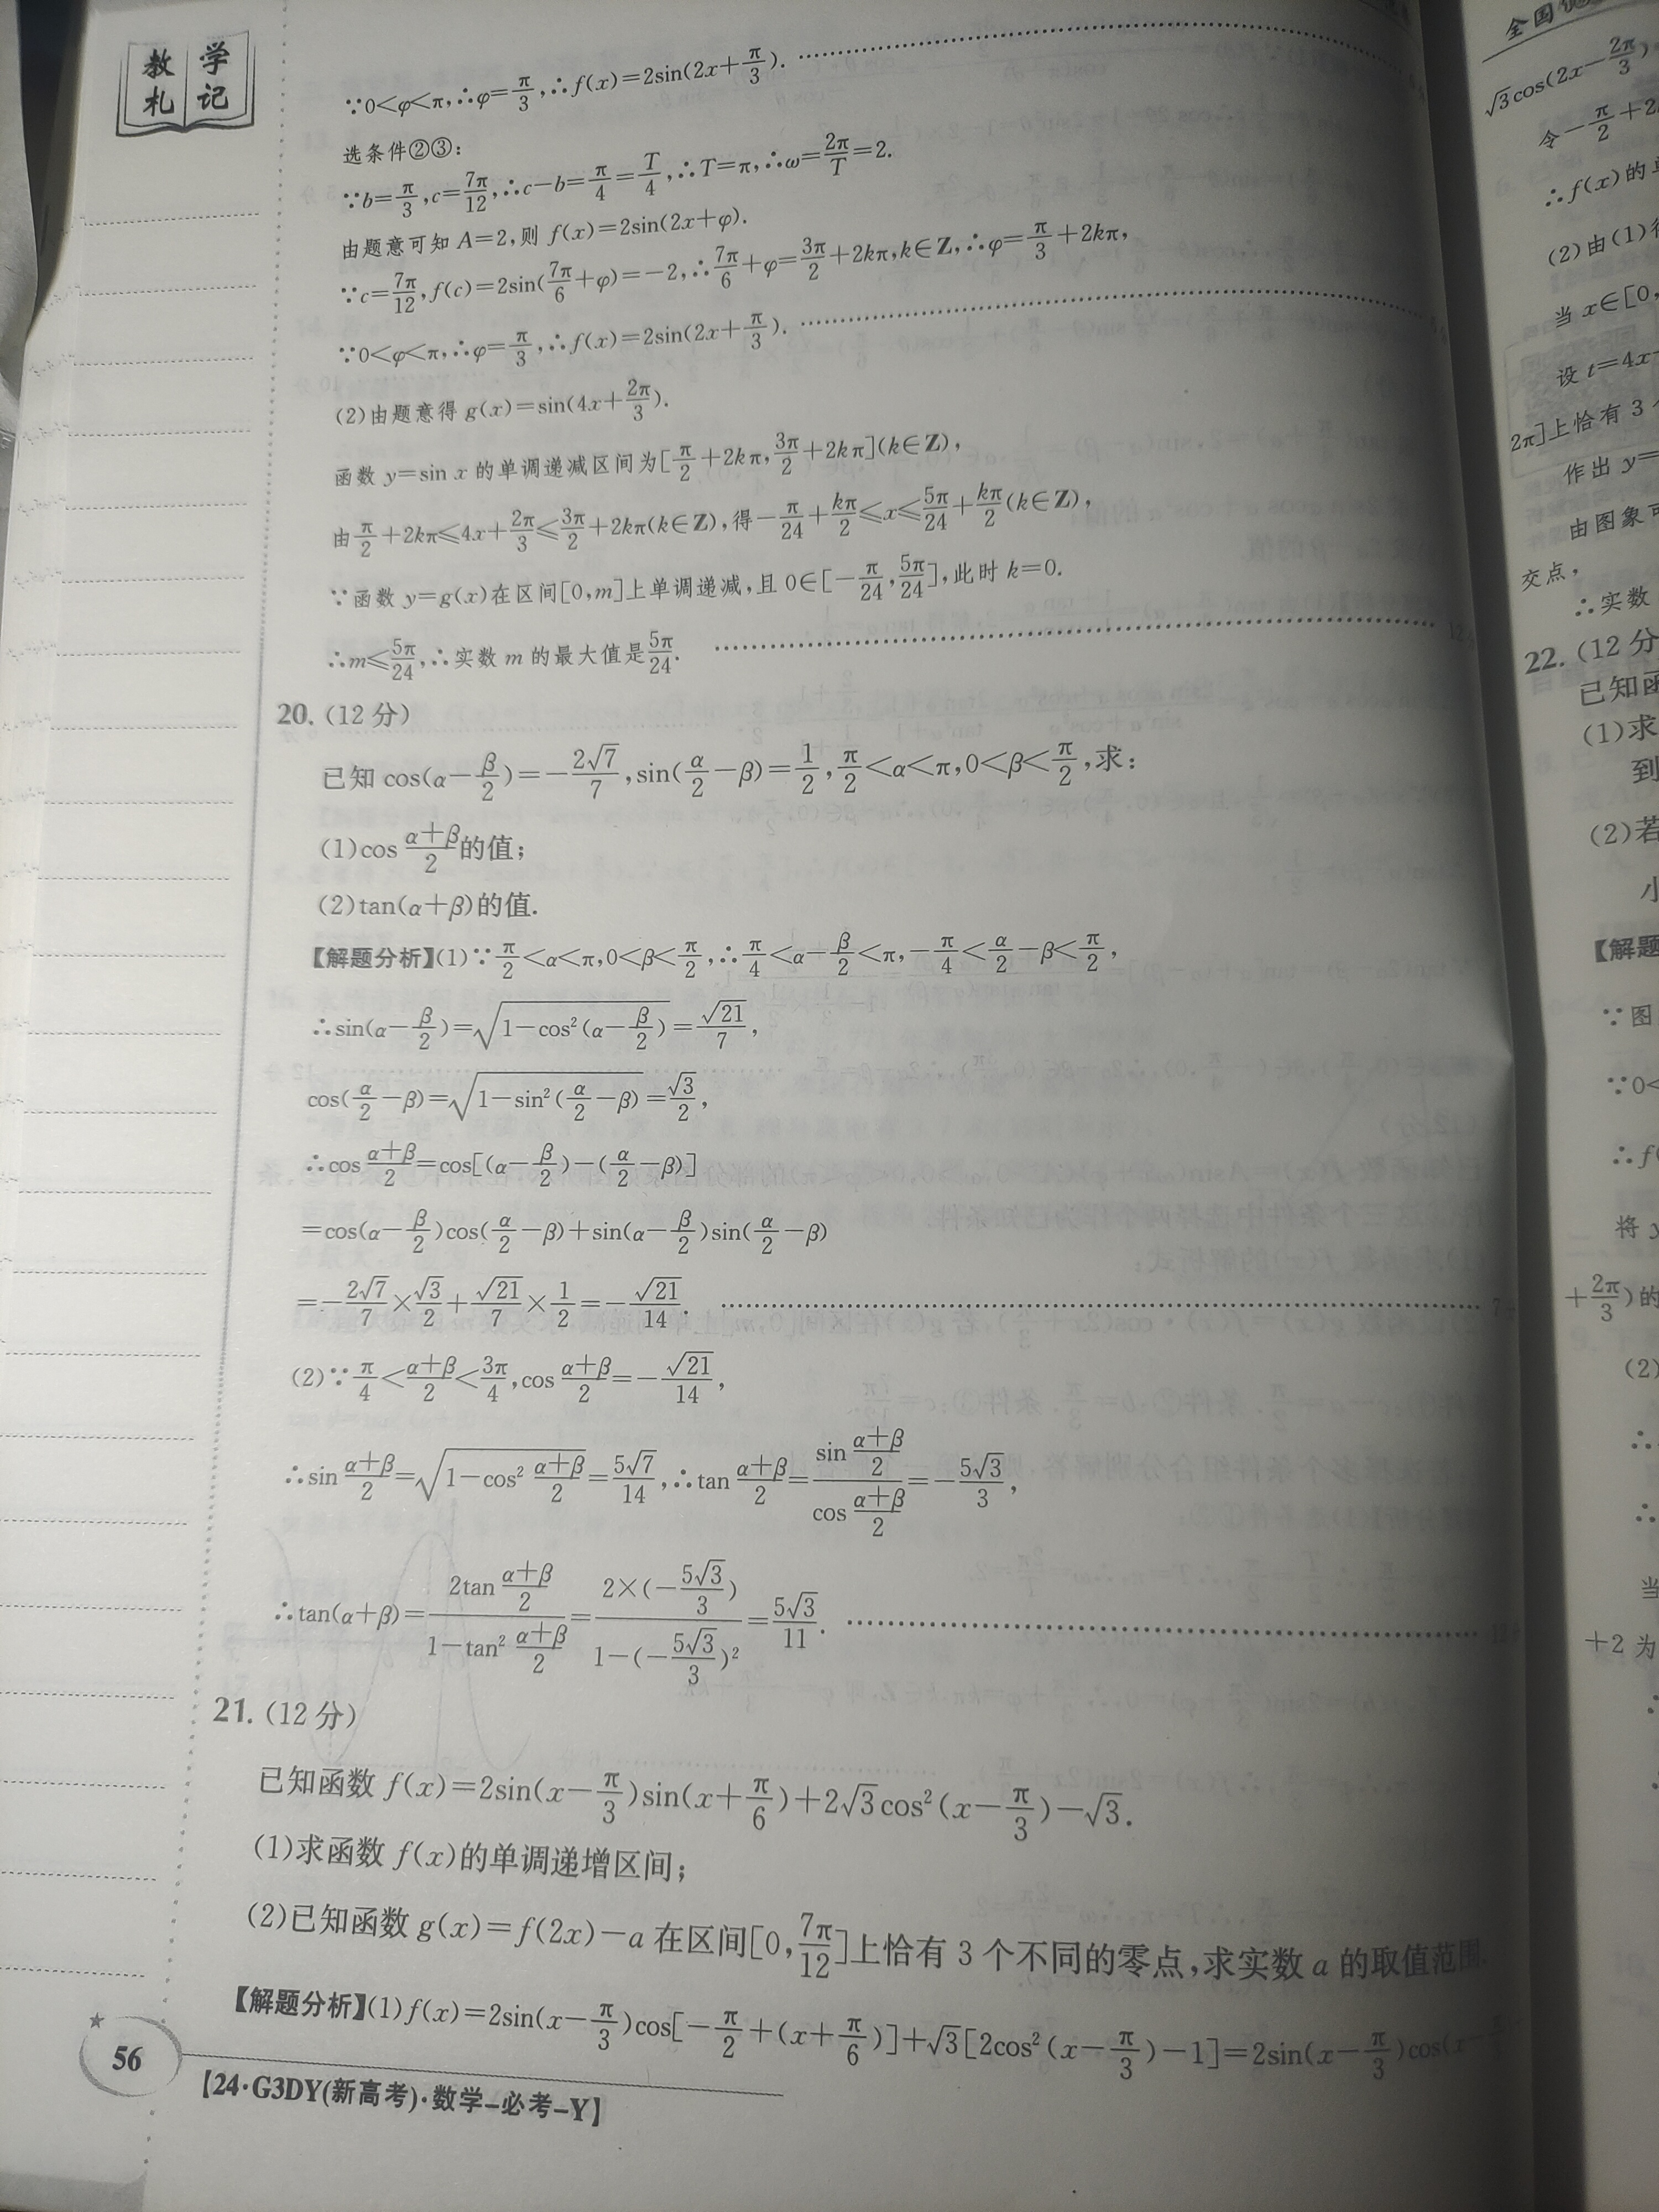 教学
札记
∵0<φ<π,∴φ=π/3,∴f(x)=2sin(2x+π/3).
选条件②③:
∵b=π/3,c=7π/12,∴c-b=π/4=T/4,∴T=π,∴ω=2π/T=2.
由题意可知 A=2,则 f(x)=2sin(2x+φ).
∵c=7π/12,f(c)=2sin(7π/6+φ)=-2,∴7π/6+φ=3π/2+2kπ,k∈Z,∴φ=π/3+2kπ,
∵0<φ<π,∴φ=π/3,∴f(x)=2sin(2x+π/3).
(2)由题意得 g(x)=sin(4x+2π/3).
函数 y=sin x 的单调递减区间为[π/2+2kπ,3π/2+2kπ](k∈Z),
由π/2+2kπ≤4x+2π/3≤3π/2+2kπ(k∈Z),得-π/24+kπ/2≤x≤5π/24+kπ/2(k∈Z),
∵函数 y=g(x)在区间[0,m]上单调递减,且 0∈[-π/24,5π/24],此时 k=0.
∴m≤5π/24,∴实数 m 的最大值是5π/24. 12
20.(12分)
已知 cos(α-β/2)=-2√7/7,sin(α/2-β)=1/2,π/2<α<π,0<β<π/2,求:
(1)cos (α+β)/2的值;
(2)tan(α+β)的值.
【解题分析】(1)∵π/2<α<π,0<β<π/2,∴π/4<α-β/2<π,-π/4<α/2-β<π/2,
∴sin(α-β/2)=√(1-cos²(α-β/2))=√21/7,
cos(α/2-β)=√(1-sin²(α/2-β))=√3/2,
∴cos (α+β)/2=cos[(α-β/2)-(α/2-β)]
=cos(α-β/2)cos(α/2-β)+sin(α-β/2)sin(α/2-β)
=-2√7/7×√3/2+√21/7×1/2=-√21/14. 7
(2)∵π/4<(α+β)/2<3π/4,cos (α+β)/2=-√21/14,
∴sin (α+β)/2=√(1-cos² (α+β)/2)=5√7/14,∴tan (α+β)/2=(sin (α+β)/2)/(cos (α+β)/2)=-5√3/3,
∴tan(α+β)=(2tan (α+β)/2)/(1-tan² (α+β)/2)=(2×(-5√3/3))/(1-(-5√3/3)²)=5√3/11. 12
21.(12分)
已知函数 f(x)=2sin(x-π/3)sin(x+π/6)+2√3cos²(x-π/3)-√3.
(1)求函数 f(x)的单调递增区间;
(2)已知函数 g(x)=f(2x)-a 在区间[0,7π/12]上恰有 3 个不同的零点,求实数 a 的取值范围.
【解题分析】(1)f(x)=2sin(x-π/3)cos[-π/2+(x+π/6)]+√3[2cos²(x-π/3)-1]=2sin(x-π/3)cos(x-
56
【24·G3DY(新高考)·数学-必考-Y】
全国
√3cos(2x-2π/3)
令-π/2+2
∴f(x)的
(2)由(1)
当 x∈[0,
设 t=4x
2π]上恰有 3
作出 y=
由图象可
交点,
∴实数
22.(12分
已知函
(1)求
到
(2)若
小
【解题
∵图
∵0<
∴f
将 y
+2π/3)的
(2)
∴
∴
当
+2 为